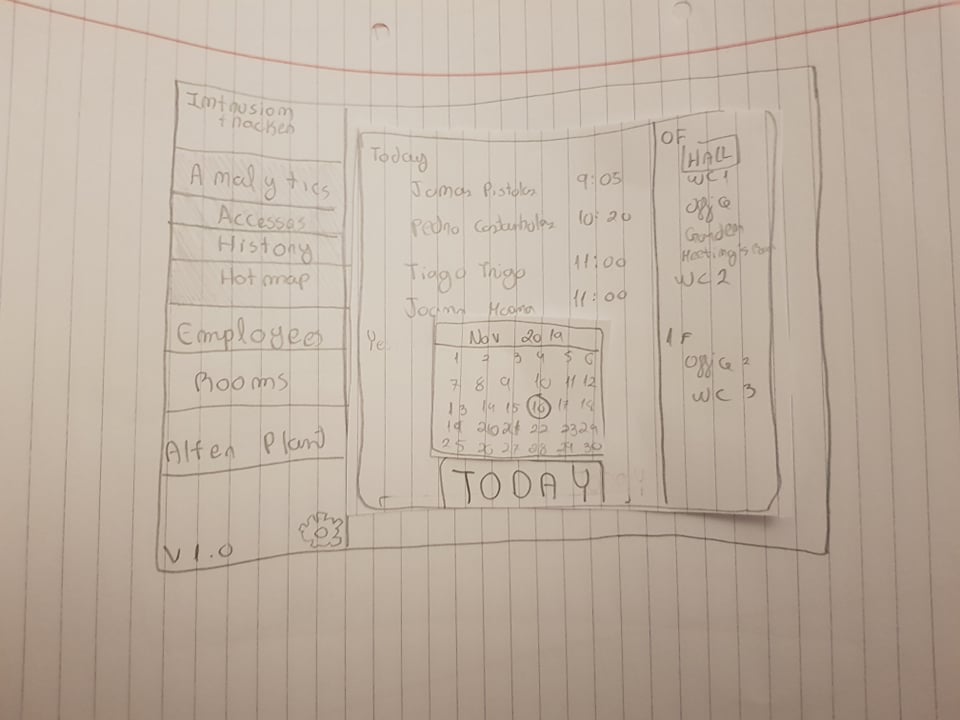 Intrusion
tracker
Analytics
Accesses
History
Hotmap
Employees
Rooms
Alter Plant
V1.0
Today
Jonas Pistolas 9:05
Pedro Castanholas 10:20
Tiago Trigo 11:00
Joana 11:00
Ye
Nov 2019
1 2 3 4 5 6
7 8 9 10 11 12
13 14 15 16 17 18
19 20 21 22 23 24
25 26 27 28 29 30
TODAY
0F
HALL
WC1
Office
Garden
Meeting's
WC2
1F
Office 2
WC 3